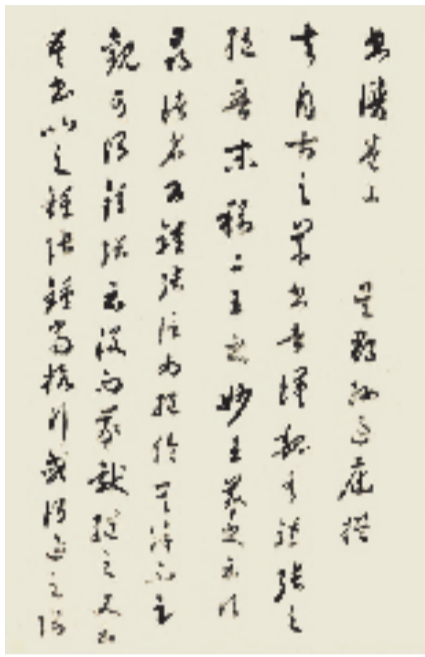 書譜卷上 吳郡孫過庭撰
夫自古之善書者漢魏有鍾張之
絕晉末稱二王之妙王羲之云頃
尋諸名書鍾張信為絕倫其餘不足
觀可謂鍾張云沒而羲獻繼之又云
吾書比之鍾張鍾當抗行或謂過之張